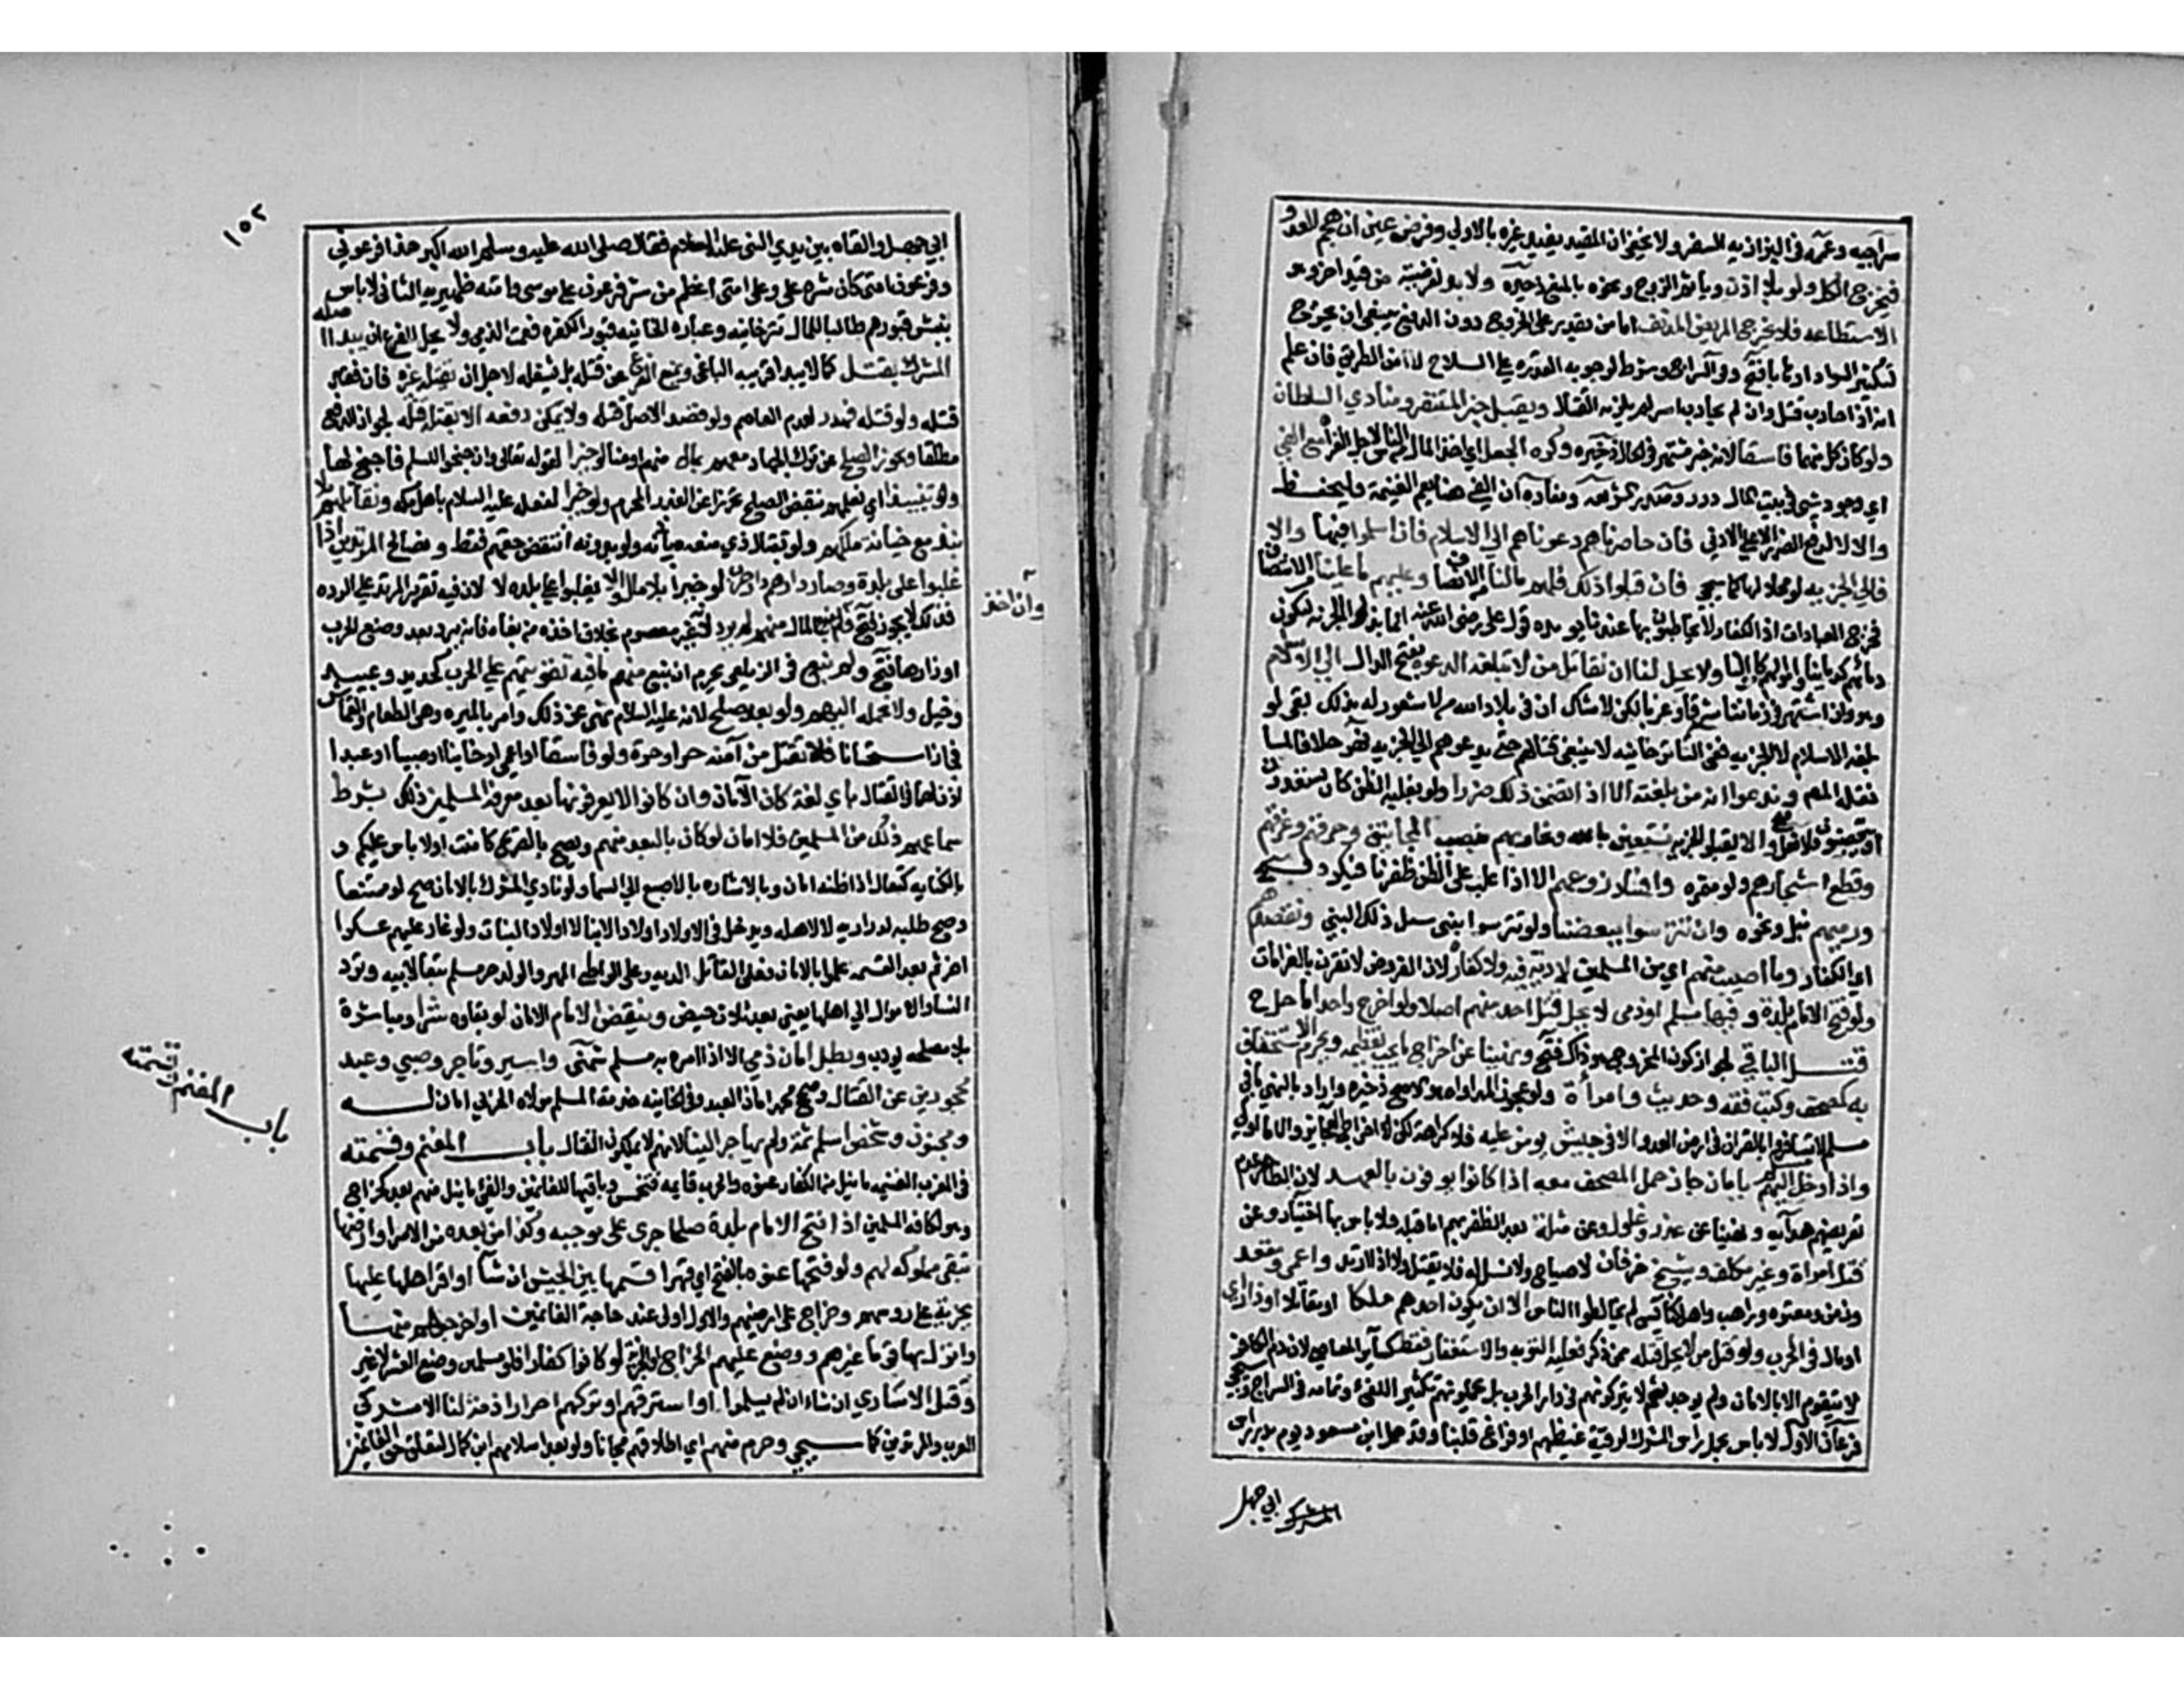 سراجيه وعممه فى البزازيه للسفر ولا يخفى ان المقيد يفيد غيره بالاولى وفرض عين ان هجم العدو
فيخرج الكل ولو بلا اذن وياثم الزوج ونحوه بالمنع ذخيره ولا بد لفرضيته من قيد اخر وهو
الاستطاعه فلا يخرج المريض المدنف اما من يقدر على الخروج دون الدفع ينبغى ان يخرج
لتكثير السواد ارهابا فتح وفى السراج وشرط لوجوبه القدره على السلاح لا امن الطريق فان علم
انه اذا حارب قتل وان لم يحارب اسر لم يلزمه القتال ويقبل خبر المستنفر ومنادي السلطان
ولو كان كل منهما فاسقا لانه خبر يشتهر فى الحال ذخيره وكره الجعل اي اخذ المال من الناس لاجل الغزاة مع الفي
اي وجود شى فى بيت المال درر وصدر شريعه ومفاده ان الفى هنا يعم الغنيمة فليحفظ
والا لا لدفع الضرر الاعلى بالادنى فان حاصرناهم دعوناهم الى الاسلام فان اسلموا فبها والا
فالى الجزيه لو محلا لها كما سيجى فان قبلوا ذلك فلهم مالنا من الانصاف وعليهم ما علينا من الانتصاف
فخرج العبادات اذ الكفار لا يخاطبون بها عندنا يويده قول على رضى الله عنه انما بذلوا الجزيه لتكون
دماؤهم كدماينا واموالهم كاموالنا ولا يحل لنا ان نقاتل من لا تبلغه الدعوه بفتح الدال الى الاسلام
وهو وان اشتهر فى زماننا شرقا وغربا لكن لا شك ان فى بلاد الله من لا شعور له بذلك بقى لو
بلغه الاسلام لا الجزيه ففى التاتارخانيه لا ينبغى قتالهم حتى يدعوهم الى الجزيه نهر خلافا لما
نقله المصنف وندعوا ندبا من بلغته الا اذا تضمن ذلك ضررا ولو بغلبه الظن كان يستعدون
او يتحصنون فلا يفعل والا يقبلوا الجزيه نستعين بالله ونحاربهم بنصب المجانيق وحرقهم وغرقهم
وقطع اشجارهم ولو مثمره وافساد زروعهم الا اذا غلب على الظن ظفرنا فيكره فتح
ورميهم بنبل ونحوه وان تترسوا ببعضنا ولو تترسوا بنبى سيل ذلك النبي ونقصدهم
اي الكفار وما اصيب منهم اي من المسلمين لا دية فيه ولا كفارة لان الفروض لا تقرن بالغرامات
ولو فتح الامام بلدة وفيها مسلم او ذمى لا يحل قتل احد منهم اصلا ولو اخرج واحد ما حل ح
قتل الباقي لجواز كون المخرج هو ذاك فتح ونهينا عن اخراج ما يجب تعظيمه ويحرم الاستخفاف
به كمصحف وكتب فقه وحديث وامرأة ولو عجوزا لمداواه هو الاصح ذخيره واراد بالنهى ما فى
مسلم لا تسافروا بالقران فى ارض العدو الا فى جيش يومن عليه فلا كراهة لكن
واذا دخل اليهم مسلم بامان جاز حمل المصحف معه اذا كانوا يوفون بالعهد لان الظاهر عدم
تعرضهم هدايه ونهينا عن غدر وغلول وعن مثلة بعد الظفر بهم اما قبله فلا باس بها اختيار وعن
قتل امراة وغير مكلف وشيخ خر فان لا صياح ولا نسل له فلا يقتل ولا اذا ارتد واعمى ومقعد
وزمن ومعتوه وراهب واهل كنائس لم يخالطوا الناس الا ان يكون احدهم ملكا او مقاتلا او ذا راي
او مال فى الحرب ولو قتل من لا يحل قتله ممن ذكر فعليه التوبه والاستغفار فقط كسائر المعاصى لان دم الكافر
لا يتقوم الا بالامان ولم يوجد ثم لا يتركونهم فى دار الحرب بل يحملونهم تكثيرا للفىء وتمامه فى السراج وسيجى
فرعان الاول لا باس بحمل راس المشرك لو فيه غيظهم او فراغ قلبنا وقد حمل ابن مسعود يوم بدر راس
المشرك ابي جهل
١٥٢
ابي جهل والقاه بين يدي النبى عليه السلام فقال صلى الله عليه وسلم الله اكبر هذا فرعوني
وفرعون امتى كان شره على وعلى امتى اعظم من شر فرعون على موسى وامته ظهيريه الثانى لا باس
بنبش قبورهم طلبا للمال تترخانيه وعباره الخانيه قبور الكفره فعمت الذمي ولا يحل للفرع ان يبدا اصله
المشرك بقتل كما لا يبدا قريبه الباغى ويمتنع الفرع عن قتله بل يشغله لاجل ان يقتله غيره فان فقد
قتله ولو قتله فهدر لعدم العاصم ولو قصد الاصل قتله ولا يمكن دفعه الا بقتله قتله لجواز الدفع
مطلقا ويجوز الصلح عن ترك الجهاد معهم بمال منهم او منا لو خيرا لقوله تعالى وان جنحوا للسلم فاجنح لها
ولو تنبيذ اي نعلمهم بنقض الصلح تحرزا عن الغدر المحرم ولو خيرا لفعله عليه السلام باهل مكه ونقاتلهم بلا
نبذ مع خيانة ملكهم ولو بقتال ذي منعه باذنه ولو بدونه انتقض حقهم فقط ونصالح المرتدين اذا
غلبوا على بلدة وصار دارهم دار حرب لو خيرا بلا مال والا يغلبوا على بلده لا لان فيه تقرير المرتد على الرده
وذلك لا يجوز فتح وان اخذ المال منهم لم يرد لانه غير معصوم بخلاف اخذه من بغاه فانه يرد بعد وضع الحرب
وان اخذ
اوزارها فتح ولم نبع فى الزيلعى يحرم ان نبيع منهم ما فيه تقويتهم على الحرب كحديد وعبيد
وخيل ولا نحمله اليهم ولو بعد صلح لانه عليه السلام نهى عن ذلك وامر بالميره وهى الطعام والقماش
فجاز استحسانا فلا نقتل من آمنه حر او حرة ولو فاسقا او اعمى او فانيا او صبيا او عبدا
اذن لهما فى القتال باي لغة كان الامان وان كانوا لا يعرفونها بعد معرفة المسلمين ذلك بشرط
سماعهم ذلك من المسلمين فلا امان لو كان بالبعد منهم ويصح بالصريح كامنت او لا باس عليكم و
بالكنايه كتعال اذا ظنه امان وبالاشاره بالاصبع الى السما ولو نادي المشرك بالامان صح لو ممتنعا
وصح طلبه لذراريه لا لاهله ويدخل فى الاولاد اولاد الابنا لا اولاد البنات ولو غار عليهم عسكر
اخر ثم بعد القسمه علموا بالامان فعلى القاتل الديه وعلى الواطى المهر والولد حر مسلم تبعا لابيه وترد
النسا والاموال الى اهلها يعنى بعد ثلاث حيض وينقض الامام الامان لو بقاوه شرا ومباشرة
بلا مصلحه يودب وبطل امان ذمي الا اذا امره به مسلم شمنى واسير وتاجر وصبي وعبد
محجورين عن القتال وصحح محمد امان العبد وفى الخانيه خدمة المسلم مولاه الحربى امان له
ومجنون وشخص اسلم ثمة ولم يهاجر الينا لانهم لا يملكون القتال باب المغنم وقسمته
باب المغنم وقسمته
فى المغرب الغنيمه ما نيل من الكفار عنوه والحرب قايمه فتخمس وباقيها للغانمين والفئ ما نيل منهم بعد كخراج
وهو لكافة المسلمين اذا فتح الامام بلدة صلحا جرى على موجبه وكذا من بعده من الامرا وارضها
تبقى مملوكه لهم ولو فتحها عنوه بالفتح اي قهرا قسمها بين الجيش ان شا او اقر اهلها عليها
بجزيه على روسهم وخراج على اراضيهم والاول اولى عند حاجة الغانمين او اخرجهم منها
وانزل بها قوما غيرهم ووضع عليهم الخراج والجزية لو كانوا كفارا فلو مسلمين وضع العشر لا غير
وقتل الاسارى ان شاء ان لم يسلموا او استرقهم او تركهم احرارا ذمة لنا الا مشركي
العرب والمرتدين كما سيجى وحرم منهم اي اطلاقهم مجانا ولو بعد اسلامهم ابن كمال لتعلق حق الغانمين